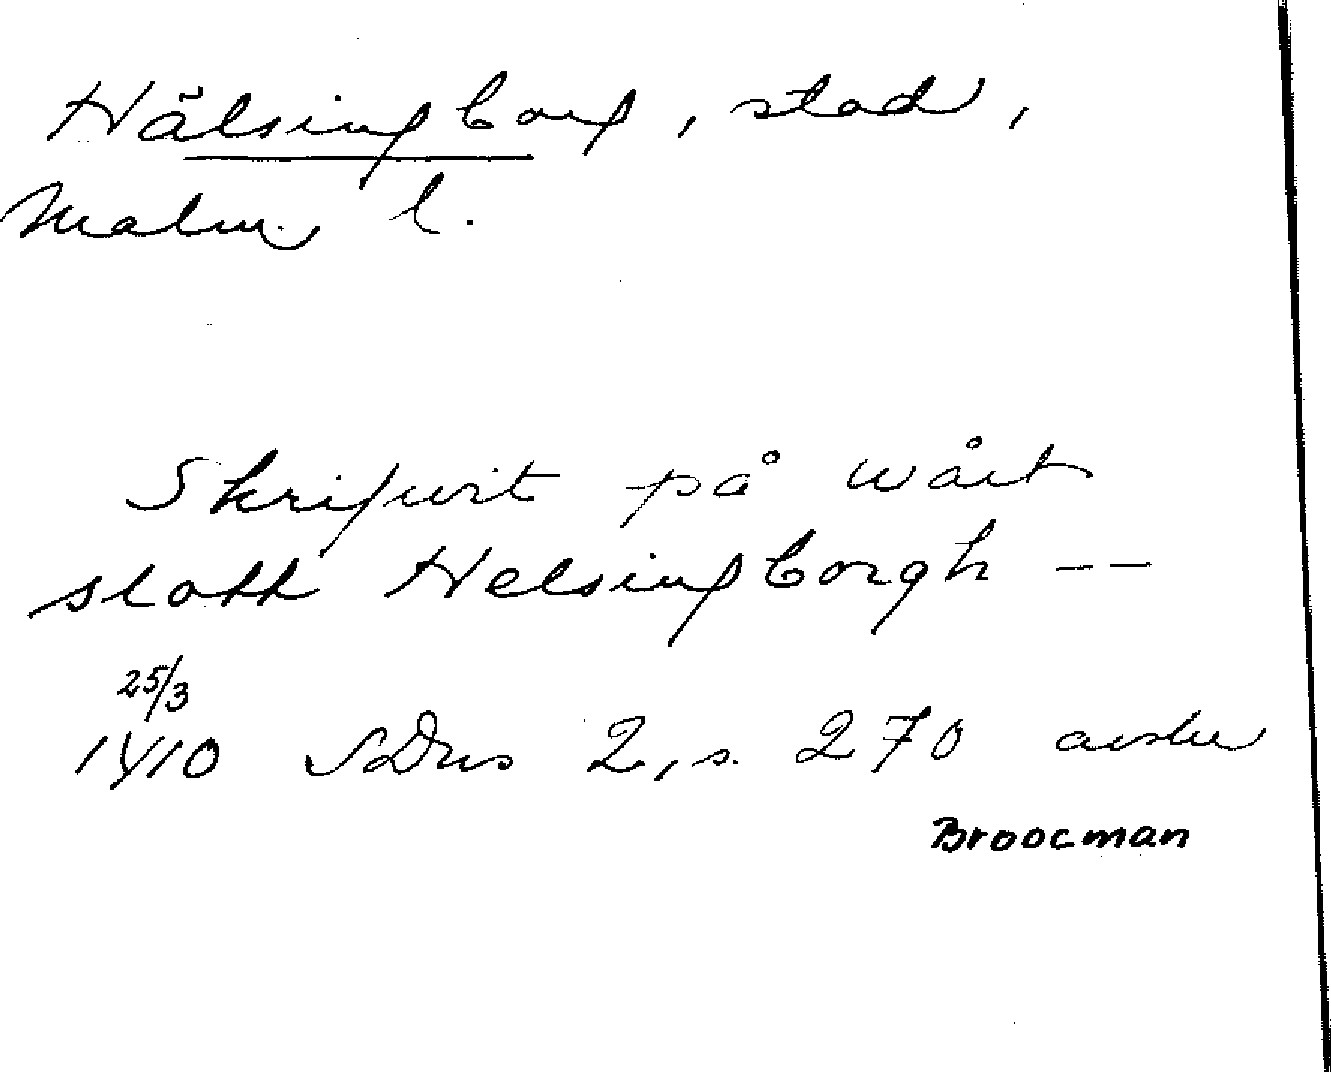 Hälsingborg, stad,
Malm. l.
Skrifwit på wårt
slott Helsingborgh --
25/3
1410 SDns 2, s. 270 avskr
Broocman